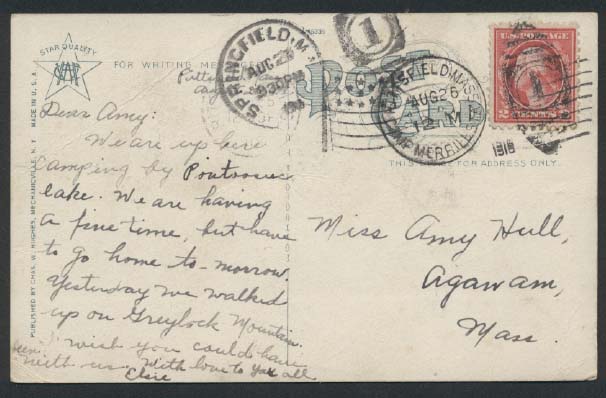 STAR QUALITY
MADE IN U.S.A.
PUBLISHED BY CHAS. W. HUGHES, MECHANICVILLE, N. Y.
FOR WRITING MESSAGES
POST CARD
THIS SPACE FOR ADDRESS ONLY.
SPRINGFIELD, MASS.
AUG 26
930PM
1
PITTSFIELD, MASS.
AUG 26
12 M
CAMP MERRILL
1916
U.S. POSTAGE
2 CENTS 2
Dear Amy:
We are up here
camping by Pontoosuc
lake. We are having
a fine time, but have
to go home to-morrow.
Yesterday we walked
up on Greylock Mountain.
I wish you could have
been with us. With love to you all
Miss Amy Hull,
Agawam,
Mass.